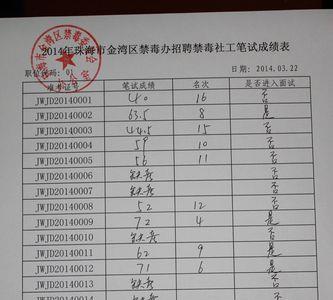 2014年珠海市金湾区禁毒办招聘禁毒社工笔试成绩表
职位代码：01 日期：2014.03.22
准考证号 笔试成绩 名次 是否进入面试
JWJD20140001 40 16 否
JWJD20140002 63.5 8 是
JWJD20140003 44.5 15 否
JWJD20140004 59 10 否
JWJD20140005 56 11 否
JWJD20140006 缺考 否
JWJD20140007 缺考 否
JWJD20140008 52 12 否
JWJD20140009 72 4 是
JWJD20140010 缺考 否
JWJD20140011 62 9 是
JWJD20140012 71 6 是
JWJD20140013 缺考 否
JWJD20140014